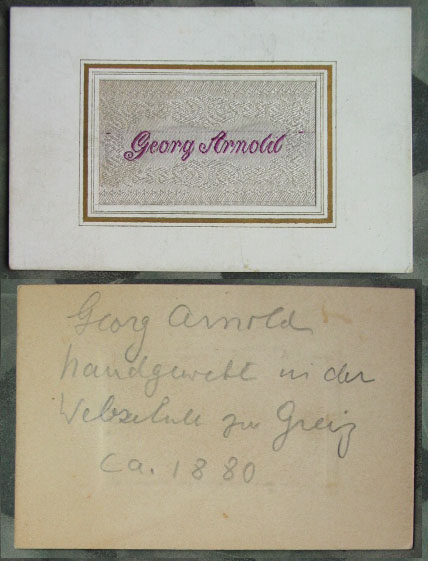 Georg Arnold
Georg Arnold
handgewebt in der
Webschule zu Greiz
ca. 1880